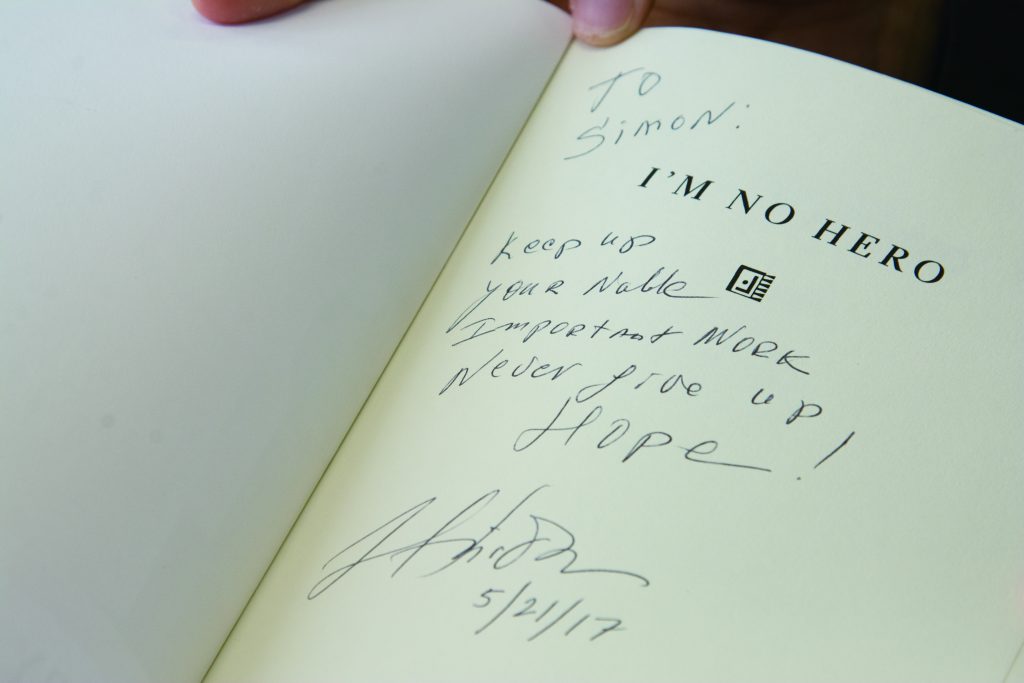 TO
SimoN:
I'M NO HERO
Keep up
your Noble
Important WORK
Never give up
Hope!
5/21/17